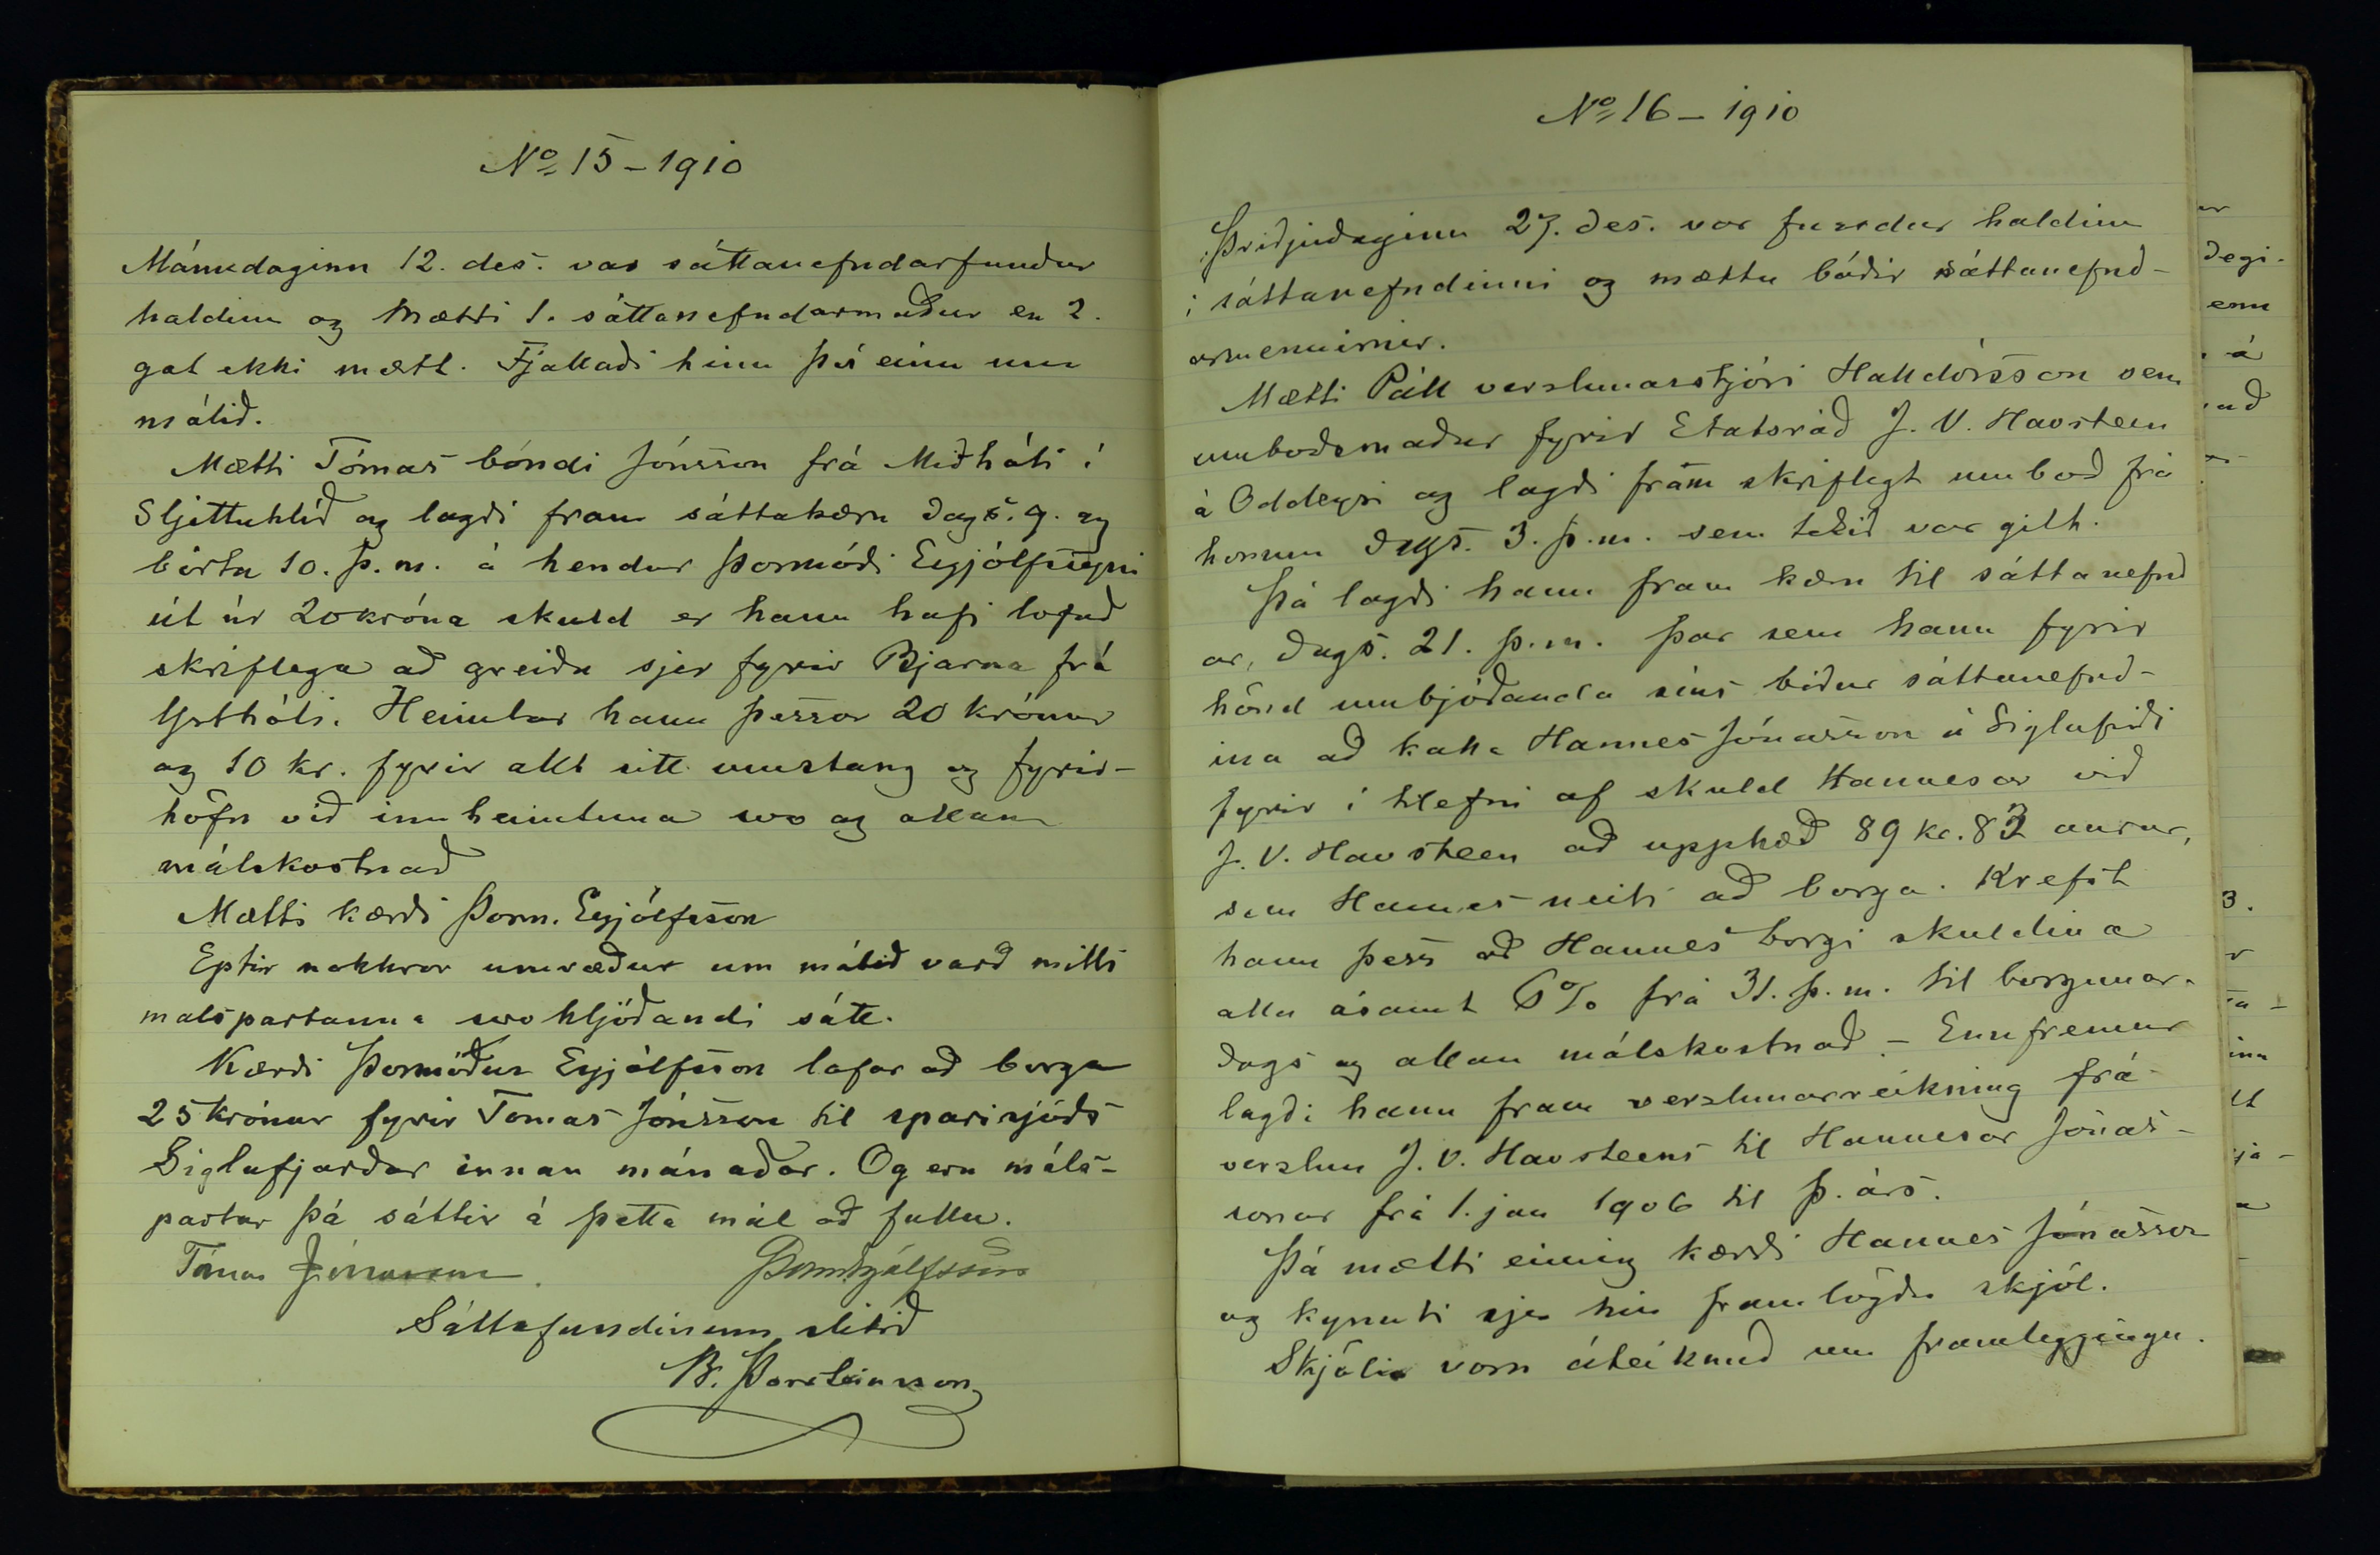 No 15 - 1910
Mánudaginn 12. des. var sáttanefndarfundur
haldinn og mætti 1. sáttanefndarmaður en 2.
gat ekki mætt. Fjallaði hinn því einn um
málið.
Mætti Tómas bóndi Jónsson frá Miðhóli í
Sljettuhlíð og lagði fram sáttakæru dags. 9. og
birta 10. þ. m. á hendur Þormóði Eyjólfssyni
út úr 20 króna skuld er hann hafi lofað
skriflega að greiða sjer fyrir Bjarna frá
Ysthóli. Heimtar hann þessar 20 krónur
og 10 kr. fyrir allt sitt umstang og fyrir-
höfn við innheimtuna svo og allan
málskostnað
Mætti kærði Þorm. Eyjólfsson
Eptir nokkrar umræður um málið varð milli
malspartanna svohljóðandi sátt.
Kærði Þormóður Eyjólfsson lofar að borga
25 krónur fyrir Tomas Jónsson til sparisjóðs
Siglufjarðar innan mánaðar. Og eru máls-
partar þá sáttir á þetta mál að fullu.
Tómas Jónsson. Þorm Eyjólfsson
Sáttafundinum slitið
B. Þorsteinsson
No 16 - 1910
Þriðjudaginn 27. des. var fundur haldinn
í sáttanefndinni og mættu báðir sáttanefnd-
armennirnir.
Mætti Páll verslunarstjóri Halldórsson sem
umboðsmaður fyrir Etatsráð J. V. Havsteen
á Oddeyri og lagði fram skriflegt umboð frá
honum dags. 3. þ. m. sem tekið var gilt.
Þá lagði hann fram kæru til sáttanefnd
ar, dags. 21. þ. m. þar sem hann fyrir
hönd umbjóðanda síns biður sáttanefnd-
ina að kalla Hannes Jónasson á Siglufirði
fyrir í tilefni af skuld Hannesar við
J. V. Havsteen að upphæð 89 kr. 83 aurar,
sem Hannes neiti að borga. Krefst
hann þess að Hannes borgi skuldina
alla ásamt 6% frá 31. þ. m. til borgunar-
dags og allan málskostnað. - Ennfremur
lagði hann fram verslunarreikning frá
verslun J. V. Havsteens til Hannesar Jónas-
sonar frá 1. jan 1906 til þ. árs.
Þá mætti einnig kærði Hannes Jónasson
og kynnti sjer hin framlögðu skjöl.
Skjölin voru áteiknuð um framleggingu.